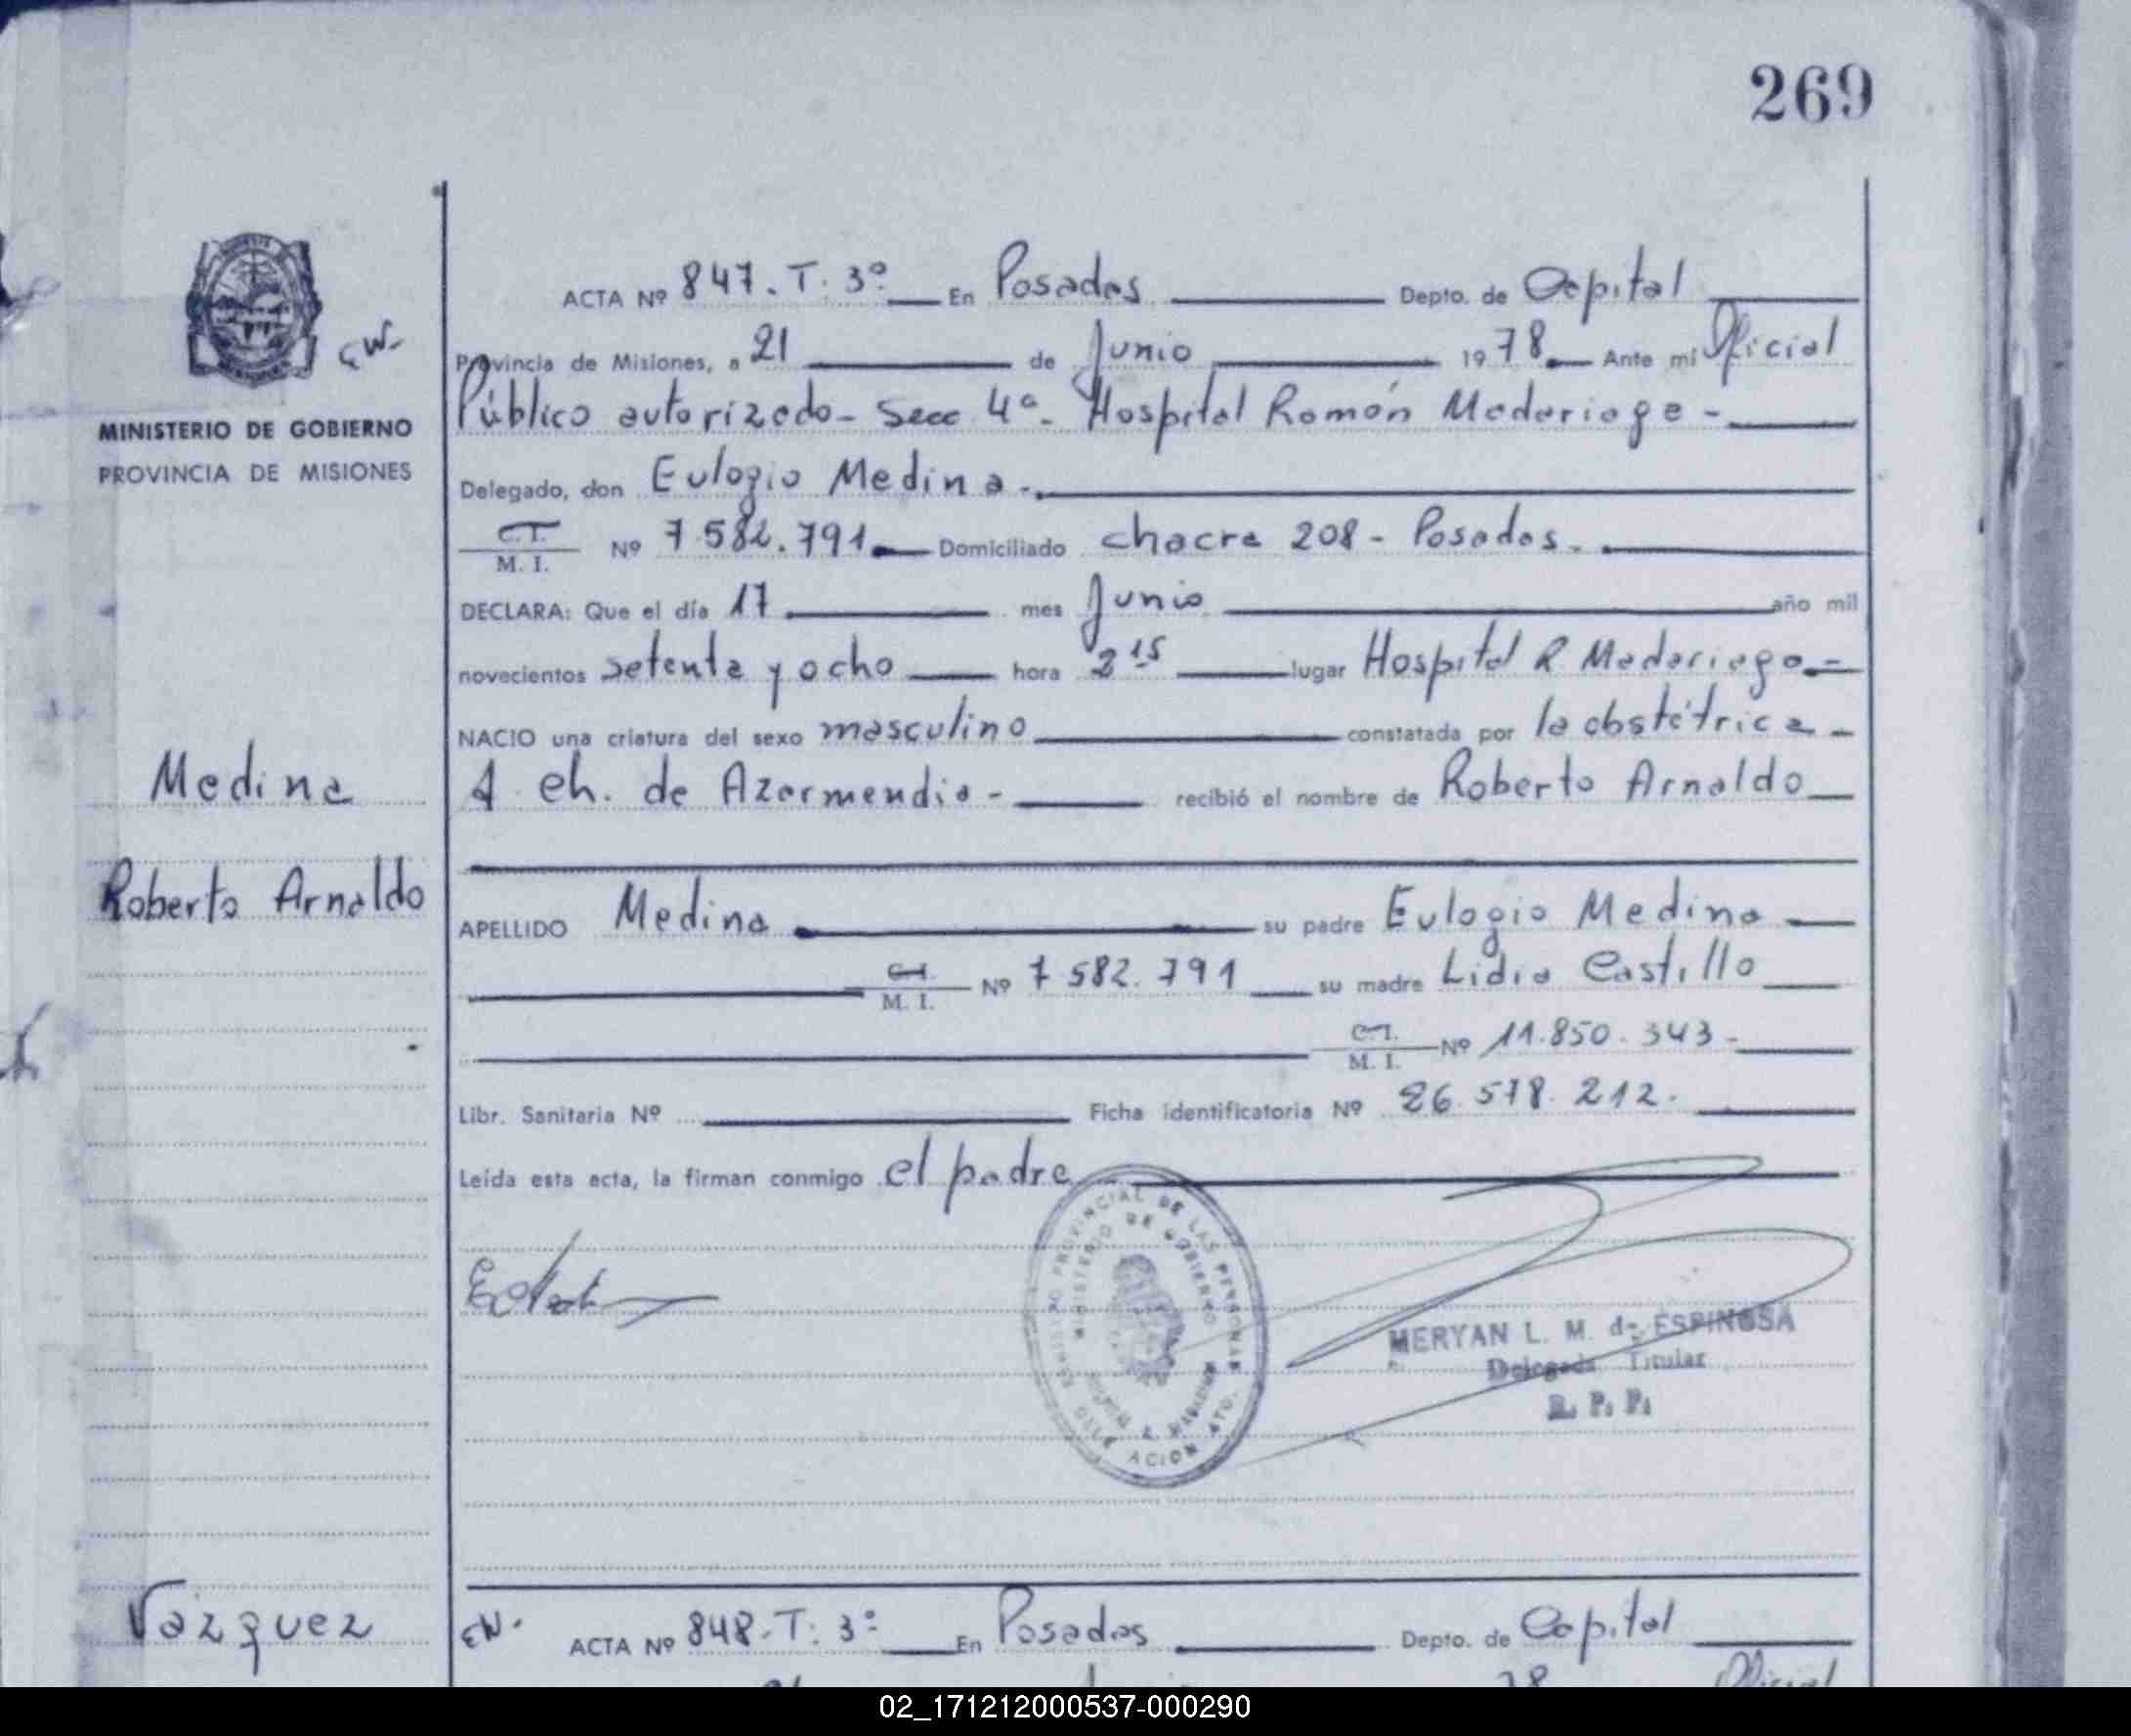 269
ACTA Nº 847. T. 3º En Posadas Depto. de Capital
Provincia de Misiones, a 21 de Junio 1978 Ante mí Oficial
Público autorizado - Secc 4ª - Hospital Ramón Madariaga -
MINISTERIO DE GOBIERNO
PROVINCIA DE MISIONES
Delegado, don Eulogio Medina -
C.I. M. I. Nº 7.582.791 Domiciliado chacra 208 - Posadas -
DECLARA: Que el día 17 mes Junio año mil
novecientos setenta y ocho hora 2 15 lugar Hospital R Madariaga -
NACIO una criatura del sexo masculino constatada por la obstétrica -
Medina
A. Ch. de Azarmendia - recibió el nombre de Roberto Arnaldo
Roberto Arnaldo
APELLIDO Medina su padre Eulogio Medina
C.I. M. I. Nº 7 582.791 su madre Lidia Castillo
C.I. M. I. Nº 11.850.343 -
Libr. Sanitaria Nº Ficha identificatoria Nº 26.578.212.
Leída esta acta, la firman conmigo el padre
REGISTRO PROVINCIAL DE LAS PERSONAS
MINISTERIO DE GOBIERNO
MERYAN L. M. de ESPINOSA
Delegada Titular
R. P. P.
Vazquez
EW. ACTA Nº 848. T. 3º En Posadas Depto. de Capital
78 Oficial
02_171212000537-000290